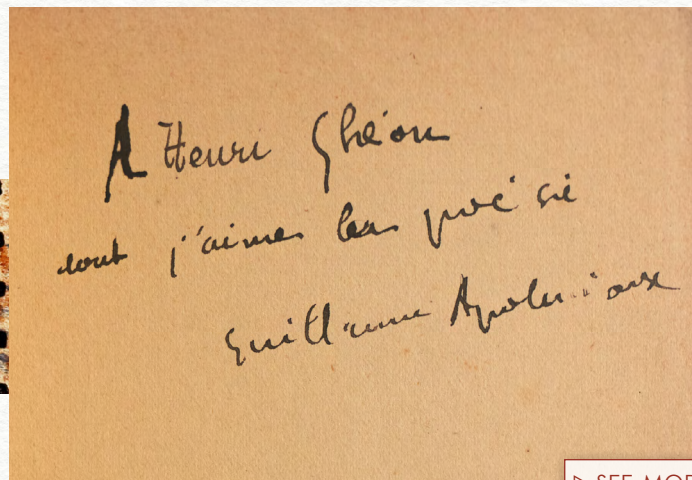 A Henri Ghéon
dont j'aime la poésie
Guillaume Apollinaire
▷ SEE MOR